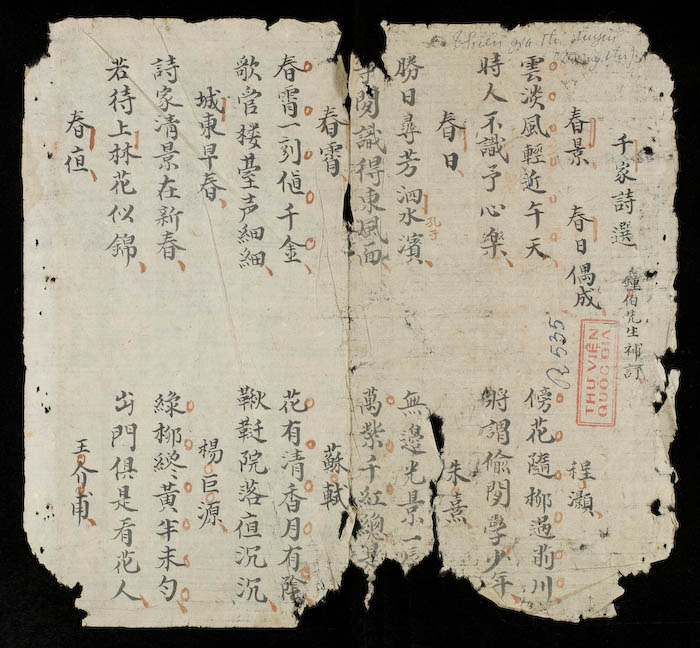 千家詩選 鐘伯先生補訂
春景 春日偶成 程灝
雲淡風輕近午天 傍花隨柳過前川
時人不識予心樂 將謂偷閑學少年
春日 朱熹
勝日尋芳泗水濱 無邊光景一
孔子
閑識得東風面 萬紫千紅總是
春霄 蘇軾
春霄一刻値千金 花有清香月有陰
歌管楼臺声細細 鞦韆院落夜沉沉
城東早春 楊巨源
詩家清景在新春 綠柳纔黃半未勻
若待上林花似錦 出門俱是看花人
春夜 王介甫
R 535
THƯ VIỆN
QUỐC GIA